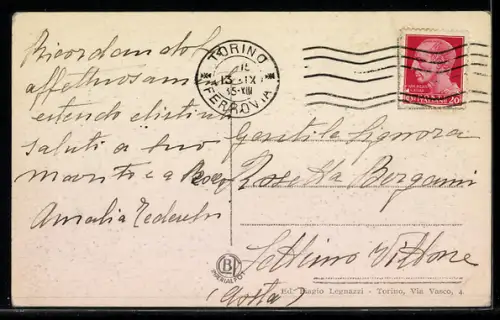 Ricordandola
affettuosamente
estendo distinti
saluti a suo
marito e a
Amalia Tedeschi
TORINO
13 IX
35-XIII
FERROVIA
POSTE ITALIANE 20
Gentile Signora
Rosetta Bergamin
Settimo Vittone
(Aosta)
B
Ed. Biagio Legnazzi - Torino, Via Vasco, 4.